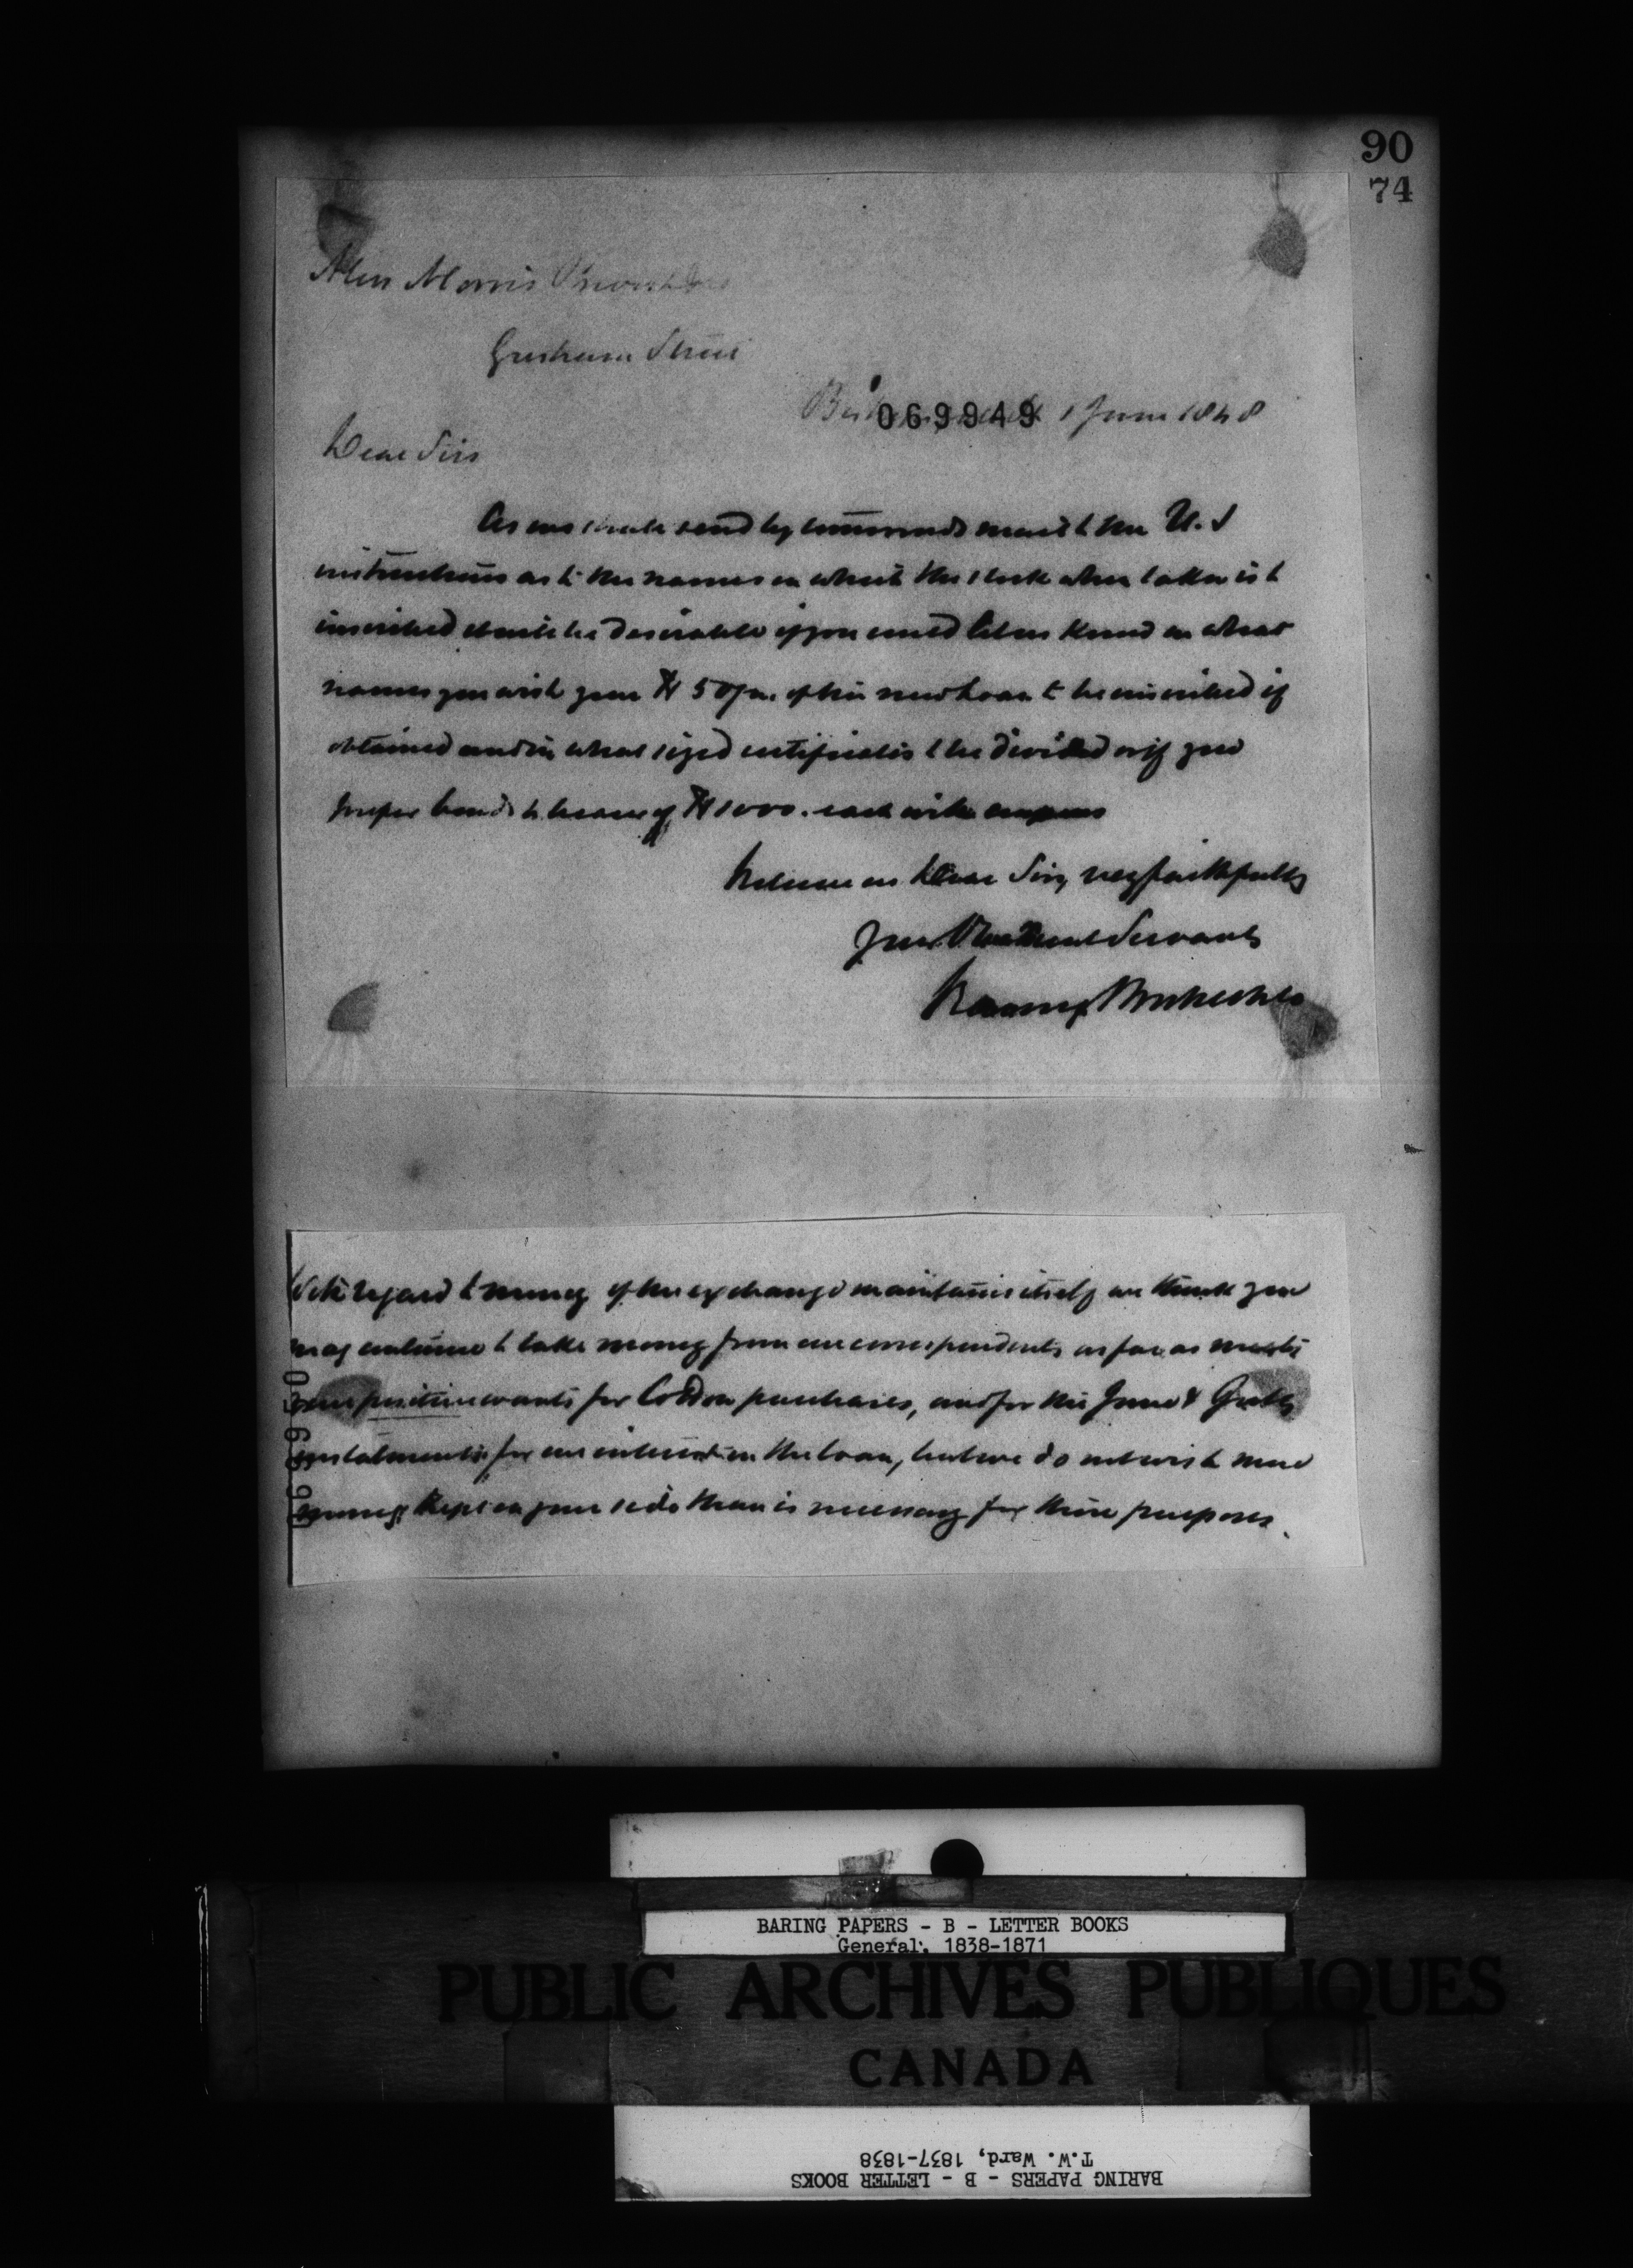 90
74
Mess Morris Prevost & Co
Gresham Street
069949 1 June 1848
Dear Sirs
As we shall send by tomorrows mail to the U.S
instructions as to the names in which the stock when taken is to
inscribed it will be desirable if you could let us know in what
names you wish your $ 50/m. of the new Loan to be inscribed if
obtained and in what sized certificates to be divided or if you
prefer bonds to bearer of $ 1000. each with coupons
believe us Dear Sirs, very faithfully
Your Obedient Servants
Baring Brothers & Co
With regard to money if the exchange maintains itself we think you
may continue to take money from our correspondents as far as meets
your positive wants for Cotton purchases, and for the June &
instalments for our interest in the loan, but we do not wish more
money kept on your side than is necessary for these purposes.
069950
BARING PAPERS - B - LETTER BOOKS
General, 1838-1871
PUBLIC ARCHIVES PUBLIQUES
CANADA
T.W. Ward, 1837-1838
BARING PAPERS - B - LETTER BOOKS